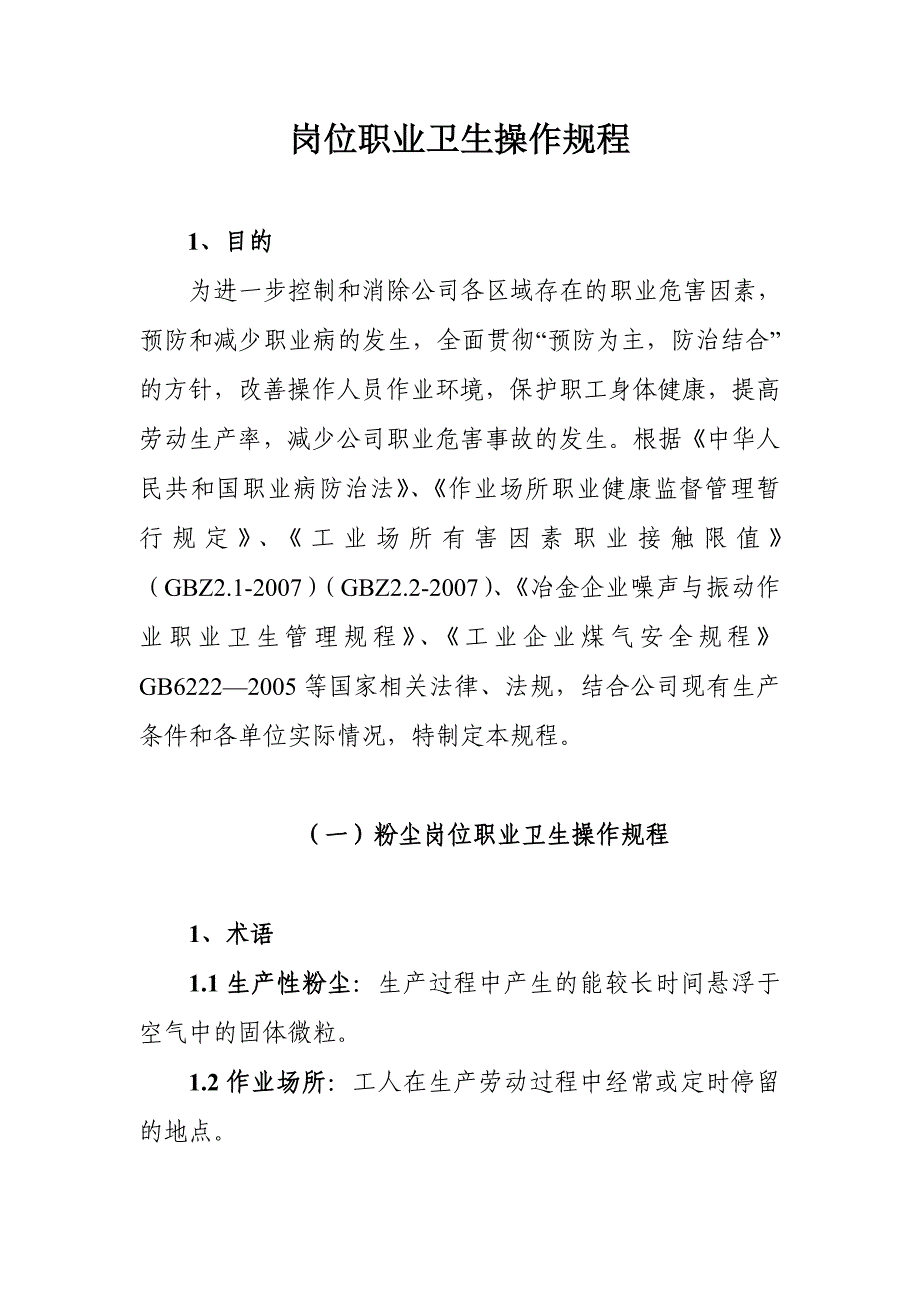 岗位职业卫生操作规程
1、目的
为进一步控制和消除公司各区域存在的职业危害因素，
预防和减少职业病的发生，全面贯彻“预防为主，防治结合”
的方针，改善操作人员作业环境，保护职工身体健康，提高
劳动生产率，减少公司职业危害事故的发生。根据《中华人
民共和国职业病防治法》、《作业场所职业健康监督管理暂
行规定》、《工业场所有害因素职业接触限值》
（GBZ2.1-2007）（GBZ2.2-2007）、《冶金企业噪声与振动作
业职业卫生管理规程》、《工业企业煤气安全规程》
GB6222—2005 等国家相关法律、法规，结合公司现有生产
条件和各单位实际情况，特制定本规程。
（一）粉尘岗位职业卫生操作规程
1、术语
1.1 生产性粉尘：生产过程中产生的能较长时间悬浮于
空气中的固体微粒。
1.2 作业场所：工人在生产劳动过程中经常或定时停留
的地点。